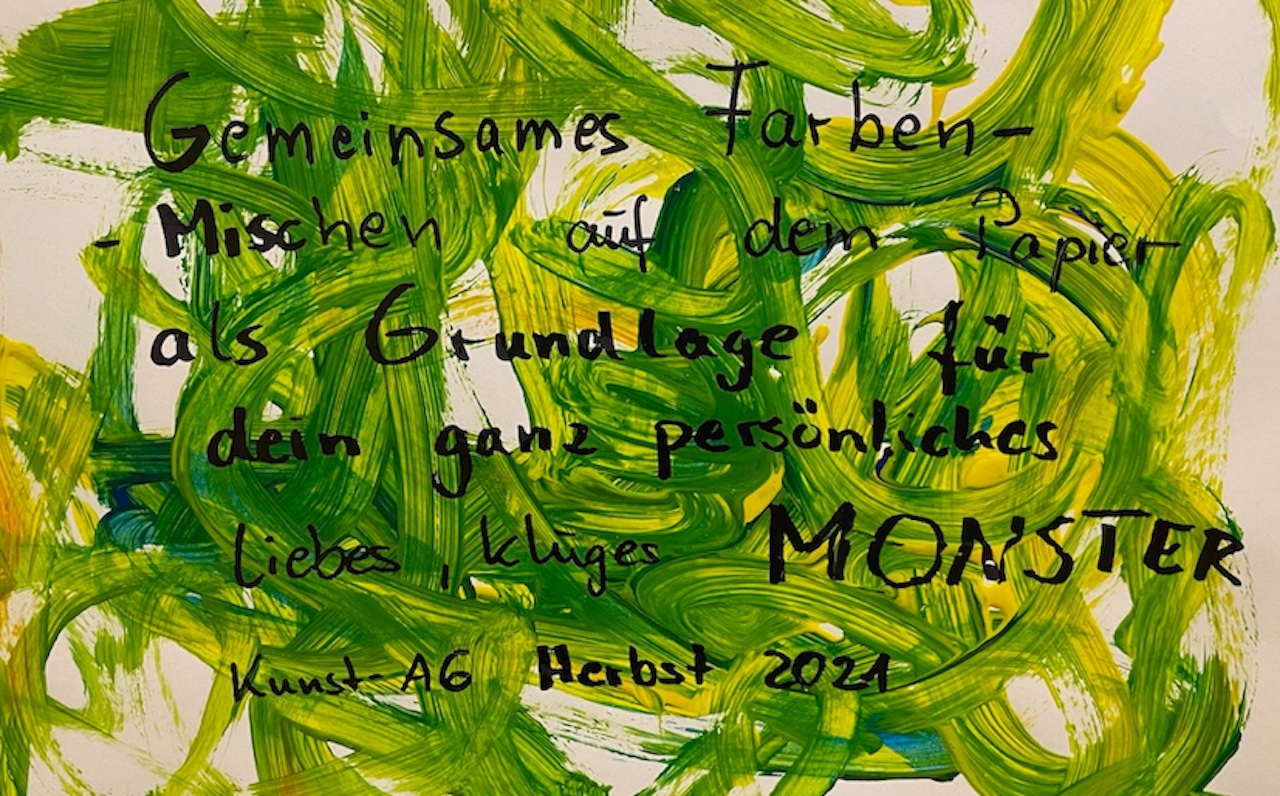 Gemeinsames Farben-
- Mischen auf dem Papier
als Grundlage für
dein ganz persönliches
liebes, kluges MONSTER
Kunst-AG Herbst 2021